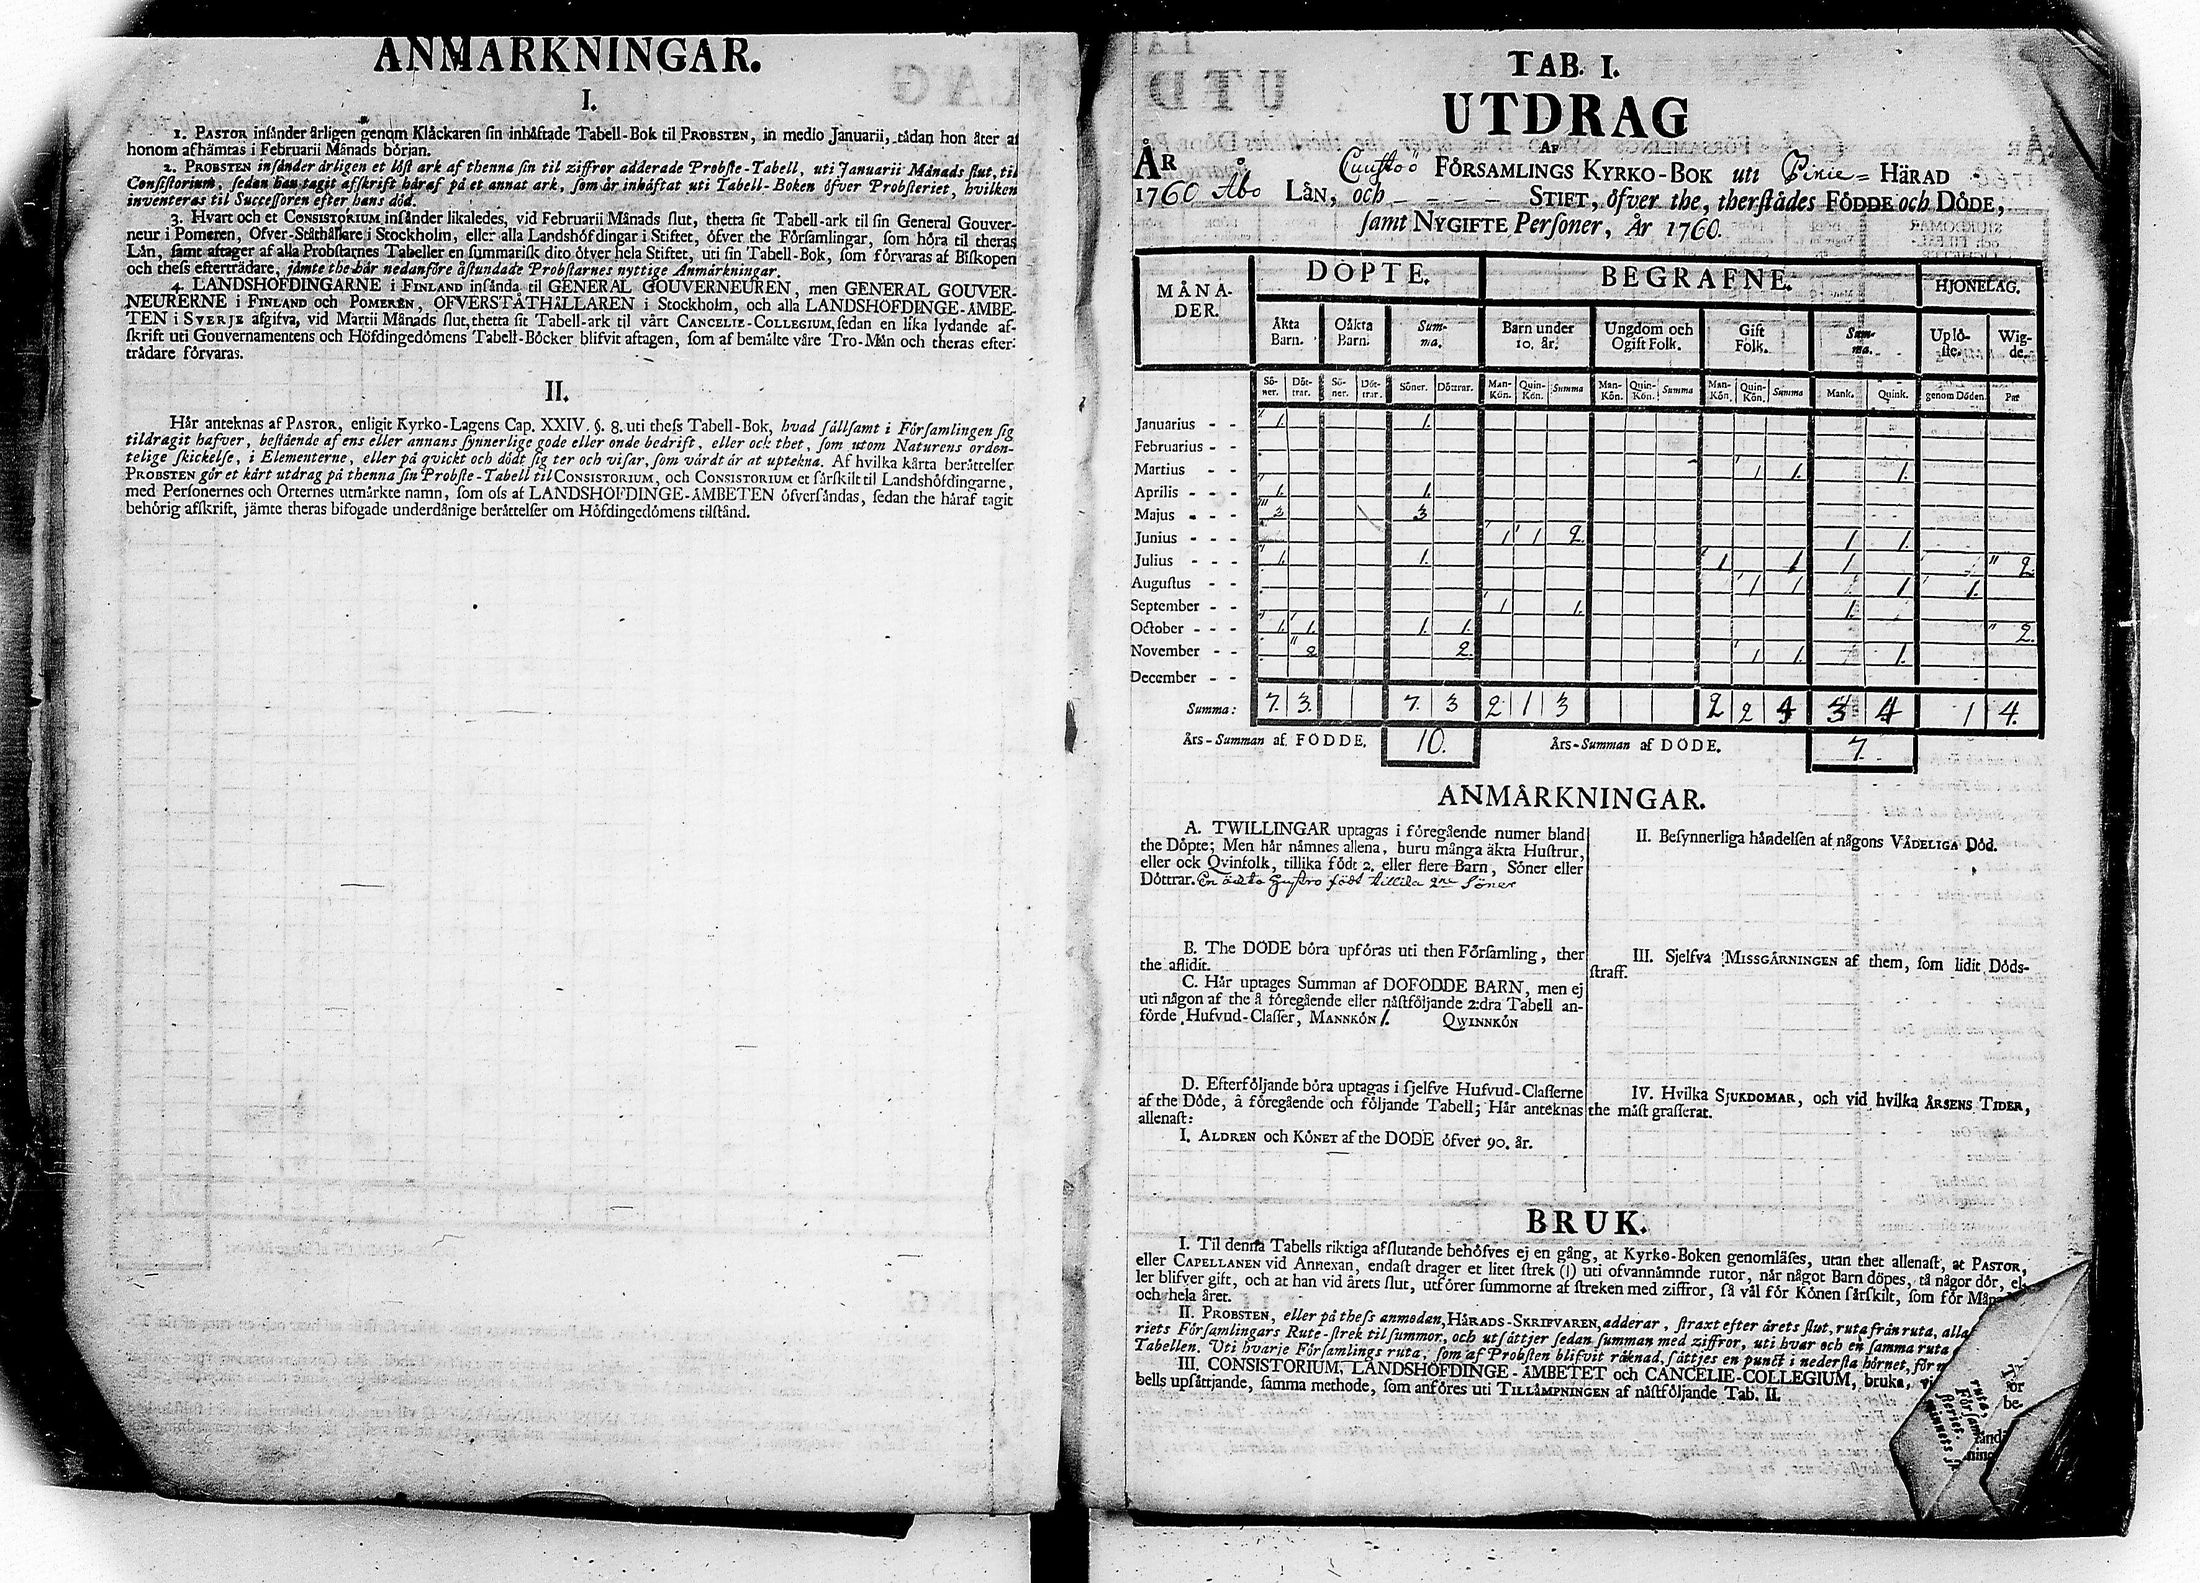 ANMARKNINGAR.
I.
1. PASTOR inſånder årligen genom Klåckaren ſin inhåftade Tabell-Bok til PROBSTEN, in medio Januarii, tådan hon åter af
honom afhämtas i Februarii Månads början.
2. PROBSTEN inſånder årligen et löſt ark af thenna ſin til ziffror adderade Probſte-Tabell, uti Januarii Månads ſlut, til
Conſiſtorium, ſedan han tagit afſkrift håraf på et annat ark, ſom år inhåftat uti Tabell-Boken öfver Probſteriet, hvilken
inventeras til Succeſſoren efter hans död.
3. Hvart och et CONSISTORIUM inſånder likaledes, vid Februarii Månads ſlut, thetta ſit Tabell-ark til ſin General Gouver-
neur i Pomeren, Ofver-Ståthållare i Stockholm, eller alla Landshöfdingar i Stiftet, öfver the Förſamlingar, ſom höra til theras
Lån, ſamt aftager af alla Probſtarnes Tabeller en ſummarisk dito öfver hela Stiftet, uti ſin Tabell-Bok, ſom förvaras af Biſkopen
och theſs efterträdare, jämte the hår nedanföre åſtundade Probſtarnes nyttige Anmärkningar.
4. LANDSHOFDINGARNE i FINLAND inſånda til GENERAL GOUVERNEUREN, men GENERAL GOUVER-
NEURERNE i FINLAND och POMEREN, OFVERSTÅTHÅLLAREN i Stockholm, och alla LANDSHOFDINGE-ÅMBE-
TEN i SVERJE afgifva, vid Martii Månads ſlut, thetta ſit Tabell-ark til vårt CANCELIE-COLLEGIUM, ſedan en lika lydande af-
ſkrift uti Gouvernamentens och Höfdingedömens Tabell-Böcker blifvit aftagen, ſom af bemälte våre Tro-Mån och theras efter-
trädare förvaras.
II.
Hår anteknas af PASTOR, enligit Kyrko-Lagens Cap. XXIV. §. 8. uti theſs Tabell-Bok, hvad ſällſamt i Förſamlingen ſig
tildragit hafver, beſtående af ens eller annans ſynnerlige gode eller onde bedrift, eller ock thet, ſom utom Naturens orden-
telige ſkickelſe, i Elementerne, eller på qvickt och dödt ſig ter och viſar, ſom vårdt år at uptekna. Af hvilka kårta beråttelſer
PROBSTEN gör et kårt utdrag på thenna ſin Probſte-Tabell til CONSISTORIUM, och CONSISTORIUM et ſårſkilt til Landshöfdingarne,
med Perſonernes och Orternes utmärkte namn, ſom oſs af LANDSHOFDINGE-ÅMBETEN öfverſåndas, ſedan the håraf tagit
behörig afſkrift, jämte theras bifogade underdånige beråttelſer om Höfdingedömens tilſtånd.
TAB. I.
UTDRAG
AF
ÅR Cuustoö FÖRSAMLINGS KYRKO-BOK uti Pirie= HÄRAD
1760 Åbo LÅN, och - - - - STIFT, öfver the, therſtådes FÖDDE och DÖDE,
ſamt NYGIFTE Perſoner, År 1760.
MÅNA-DER. DÖPTE. BEGRAFNE. HJONELAG.
Åkta Barn. Oåkta Barn. Sum-ma. Barn under 10. år. Ungdom och Ogift Folk. Gift Folk. Sum-ma. Uplö-ſte. Wig-de.
Sö-ner. Döt-trar. Sö-ner. Döt-trar. Söner. Döttrar. Man-Kön. Quin-Kön. Summa Man-Kön. Quin-Kön. Summa Man-Kön. Quin-Kön. Summa Mank. Quink. genom Döden. Par
Januarius - - 1. 1.
Februarius -
Martius - - 1 1. 1.
Aprilis - - - 1. 1.
Majus - - - 3 3
Junius - - - 1 1 2 1 1.
Julius - - - 1. 1. 1 1 1 2
Auguſtus - - 1 1 1 1.
September - - 1 1. 1.
October - - - 1. 1. 1. 1. 2.
November - - 2 2. 1 1. 1.
December - -
Summa: 7. 3. 7. 3 2 1 3 2 2 4 3 4 1 4.
Års-Summan af FÖDDE. 10. Års-Summan af DÖDE. 7.
ANMÅRKNINGAR.
A. TWILLINGAR uptagas i föregående numer bland
the Döpte; Men hår nämnes allena, huru många äkta Huſtrur,
eller ock Qvinfolk, tillika födt 2. eller flere Barn, Söner eller
Döttrar. En äckta Hustro födt tillika 2ne Söner
B. The DÖDE böra upföras uti then Förſamling, ther
the aflidit.
C. Hår uptages Summan af DÖFÖDDE BARN, men ej
uti någon af the å föregående eller nåſtföljande 2:dra Tabell an-
förde Hufvud-Claſſer, MANNKÖN 1. QWINNKÖN
D. Efterföljande böra uptagas i ſjelfve Hufvud-Claſſerne
af the Döde, å föregående och följande Tabell; Hår anteknas
allenaſt:
I. ALDREN och KÖNET af the DÖDE öfver 90. år.
II. Beſynnerliga håndelſen af någons VÅDELIGA Död.
III. Sjelfva MISSGÅRNINGEN af them, ſom lidit Döds-
ſtraff.
IV. Hvilka SJUKDOMAR, och vid hvilka ÅRSENS TIDER,
the måſt grafſerat.
BRUK.
I. Til denna Tabells riktiga afſlutande behöfves ej en gång, at Kyrko-Boken genomläſes, utan thet allenaſt, at PASTOR,
eller CAPELLANEN vid Annexan, endaſt drager et litet ſtrek (|) uti ofvannämnde rutor, når något Barn döpes, tå någor dör, el-
ler blifver gift, och at han vid årets ſlut, utförer ſummorne af ſtreken med ziffror, ſå vål för Könen ſårſkilt, ſom för Mån
och hela året.
II. PROBSTEN, eller på theſs anmodan, HÄRADS-SKRIFVAREN, adderar, ſtraxt efter årets ſlut, ruta från ruta, alla
riets Förſamlingars Rute-ſtrek til ſummor, och utſåttjer ſedan ſumman med ziffror, uti hvar och en ſamma ruta
Tabellen. Uti hvarje Förſamlings ruta, ſom af Probſten blifvit råknad, ſåttjes en punct i nederſta hörnet, för
III. CONSISTORIUM, LANDSHÖFDINGE-ÅMBETET och CANCELIE-COLLEGIUM, bruka,
bells upſåttjande, ſamma methode, ſom anföres uti TILLÅMPNINGEN af nåſtföljande Tab. II.